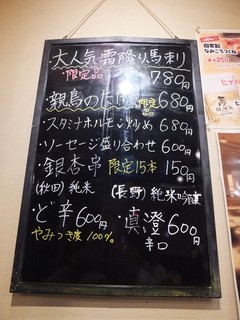 大人気霜降り馬刺
限定品 780円
親鳥のたたき 限定 680円
・スタミナホルモン炒め 680円
・ソーセージ盛り合わせ 600円
・銀杏串 限定15本 150円
(秋田) 純米
(長野) 純米吟醸
ど辛 600円
やみつき度 100%
・真澄 600円
辛口
自家製
なみころつくね
250